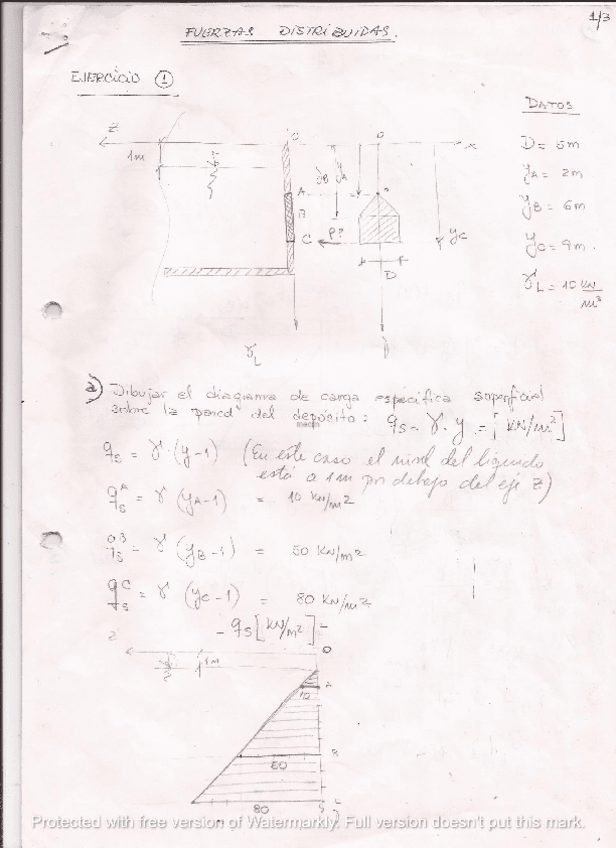 1/3
FUERZAS DISTRIBUIDAS.
EJERCICIO 1
DATOS
Z
O
O
x
1m
yB
yA
A
B
C
P?
D
yC
D = 5m
yA = 2m
yB = 6m
yC = 9m.
γL = 10 KN/m³
γL
a) Dibujar el diagrama de carga especifica superficial
sobre la pared del depósito: qs = γ · y = [KN/m²]
qs = γ · (y-1) (En este caso el nivel del liquido
está a 1m por debajo del eje Z)
qsA = γ (yA-1) = 10 KN/m²
qsB = γ (yB-1) = 50 KN/m²
qsC = γ (yC-1) = 80 KN/m²
qs [KN/m²]
Z
O
1m
10
A
80
Protected with free version of Watermarkly. Full version doesn't put this mark.